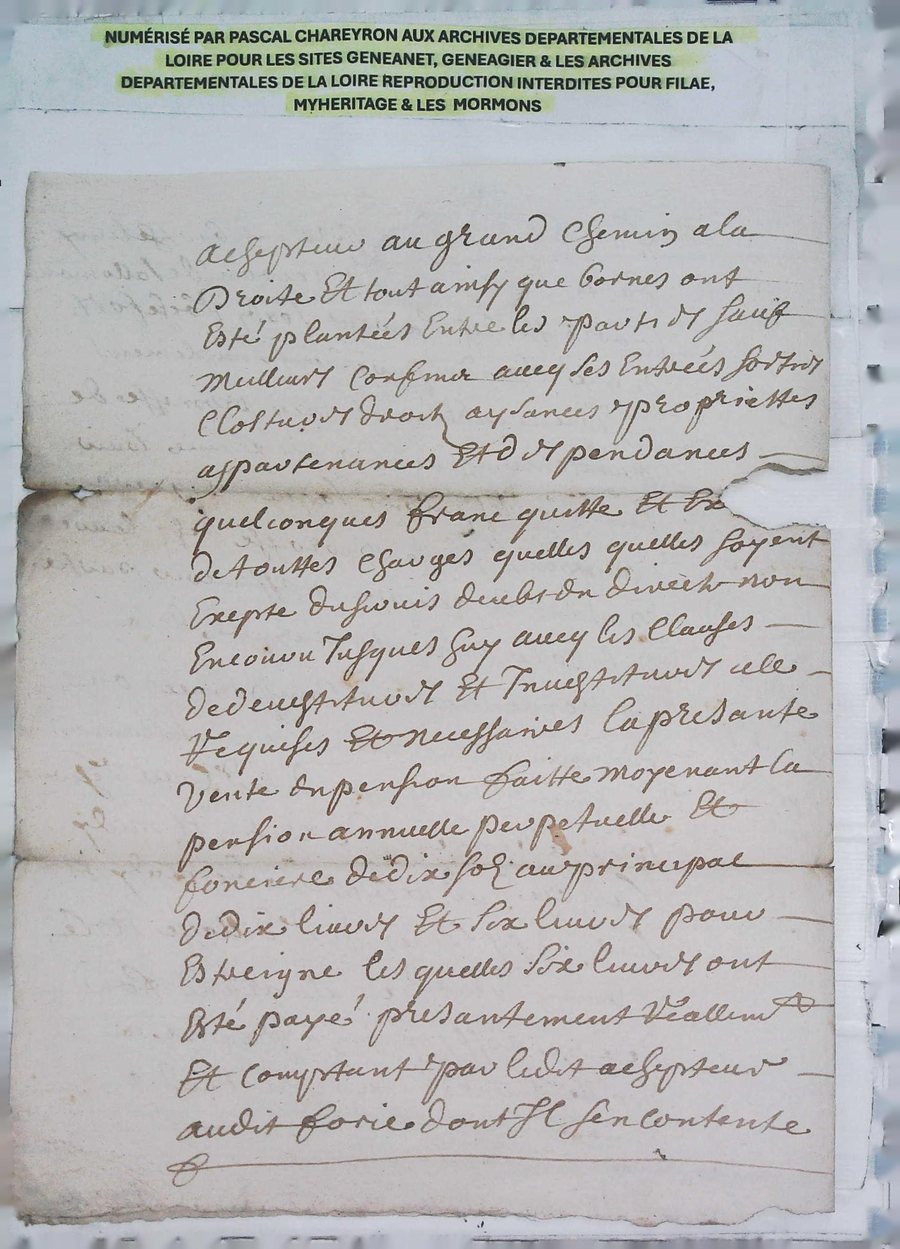 NUMÉRISÉ PAR PASCAL CHAREYRON AUX ARCHIVES DEPARTEMENTALES DE LA
LOIRE POUR LES SITES GENEANET, GENEAGIER & LES ARCHIVES
DEPARTEMENTALES DE LA LOIRE REPRODUCTION INTERDITES POUR FILAE,
MYHERITAGE & LES MORMONS
achepteur au grand chemin a la
Droite Et tout ainsy que bornes ont
Esté plantées Entre les parties sauf
meilleurs confins avecq ses Entrées sorties
Clostures droitz aysances propriettes
appartenances Et deppendances
quelconques franc quitte Et
de touttes charges quelles quelles soyent
Exepte du servis deubt du direct non
Encouru Jusques huy avecq les clauses
de devestitures Et Investitures
Requises Et necessaires la presante
vente en pension faitte moyenant la
pension annuelle perpetuelle Et
fonciere de dix solz au principal
de dix livres Et six livres pour
Estreigne les quelles six livres ont
Esté payé presantement Reallemt
Et comptant par ledit achepteur
audit forie dont Il sen contente